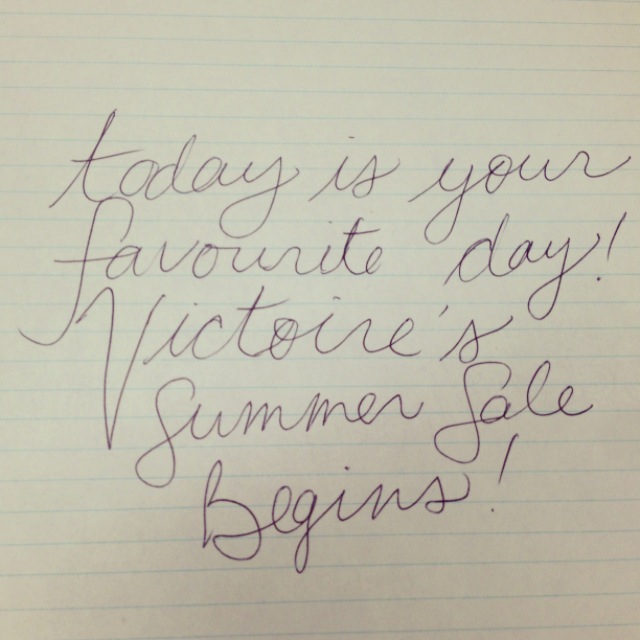 today is your
favourite day!
Victoire's
Summer Sale
Begins!